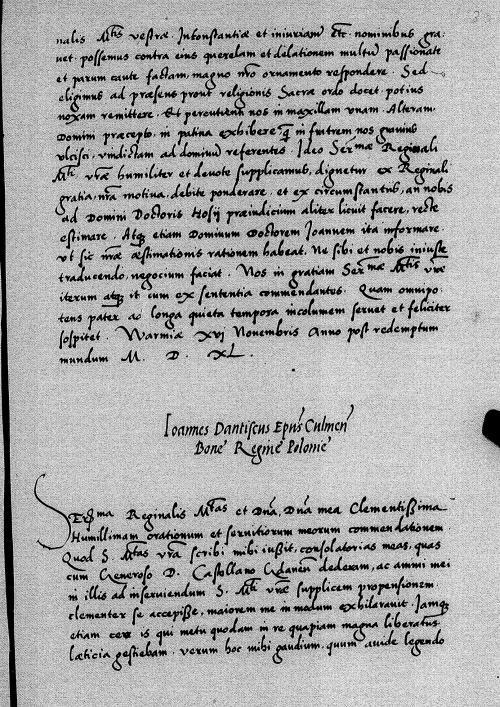 nalis Mtis vestrae. Inconstantiae et iniuriam etc. nominibus gra-
uet. possemus contra eius querelam et delationem multum passionate
et parum caute factam, magno nro ornamento respondere. Sed
eligimus ad praesens prout religionis Sacrae ordo docet. potius
noxam remittere. Et percutienti nos in maxillam unam. Alteram
Domini praecepto, in patina exhibere, q in fratrem nos grauius
vlcisci. vindictam ad dominum referentes. Ideo Sermae Reginali
Mti vrae humiliter et deuote supplicamus, dignetur ex Reginali
gratia, nra motiua, debite ponderare, et ex circumstantiis, an nobis
ad Domini Doctoris Hosij praeiudicium aliter licuit facere, recte
estimare. Atq etiam Dominum Doctorem Joannem ita informare.
vt sic nrae aestimationis rationem habeat, Ne sibi et nobis iniuste
traducendo, negocium faciat. Nos in gratiam Sermae Mtis vrae
iterum atq it cum ex sententia commendantes. Quam omnipo-
tens pater ad longa quieta tempora incolumem seruet et feliciter
sospitet. Warmiae xvj Nouembris Anno post redemptum
mundum M. D. XL.
Ioannes Dantiscus Epus Culmen
Bone Regine Polonie
Serma Reginalis Mtas et Dna, Dna mea Clementissima
Humillimam orationum et seruitiorum meorum commendationem.
Quod S. Mtas vra scribi mihi iussit, consolatorias meas, quas
cum Generoso D. Castellano Gdanen dederam, ac animi mei
in illis ad inseruiendum S. Mti vrae supplicem propensionem
clementer se accepisse, maiorem me in modum exhilarauit. Iamq
etiam cere is qui metu quodam in re quapiam magna liberatus
laeticia gestiebam. verum hoc mihi gaudium, quum auide legendo